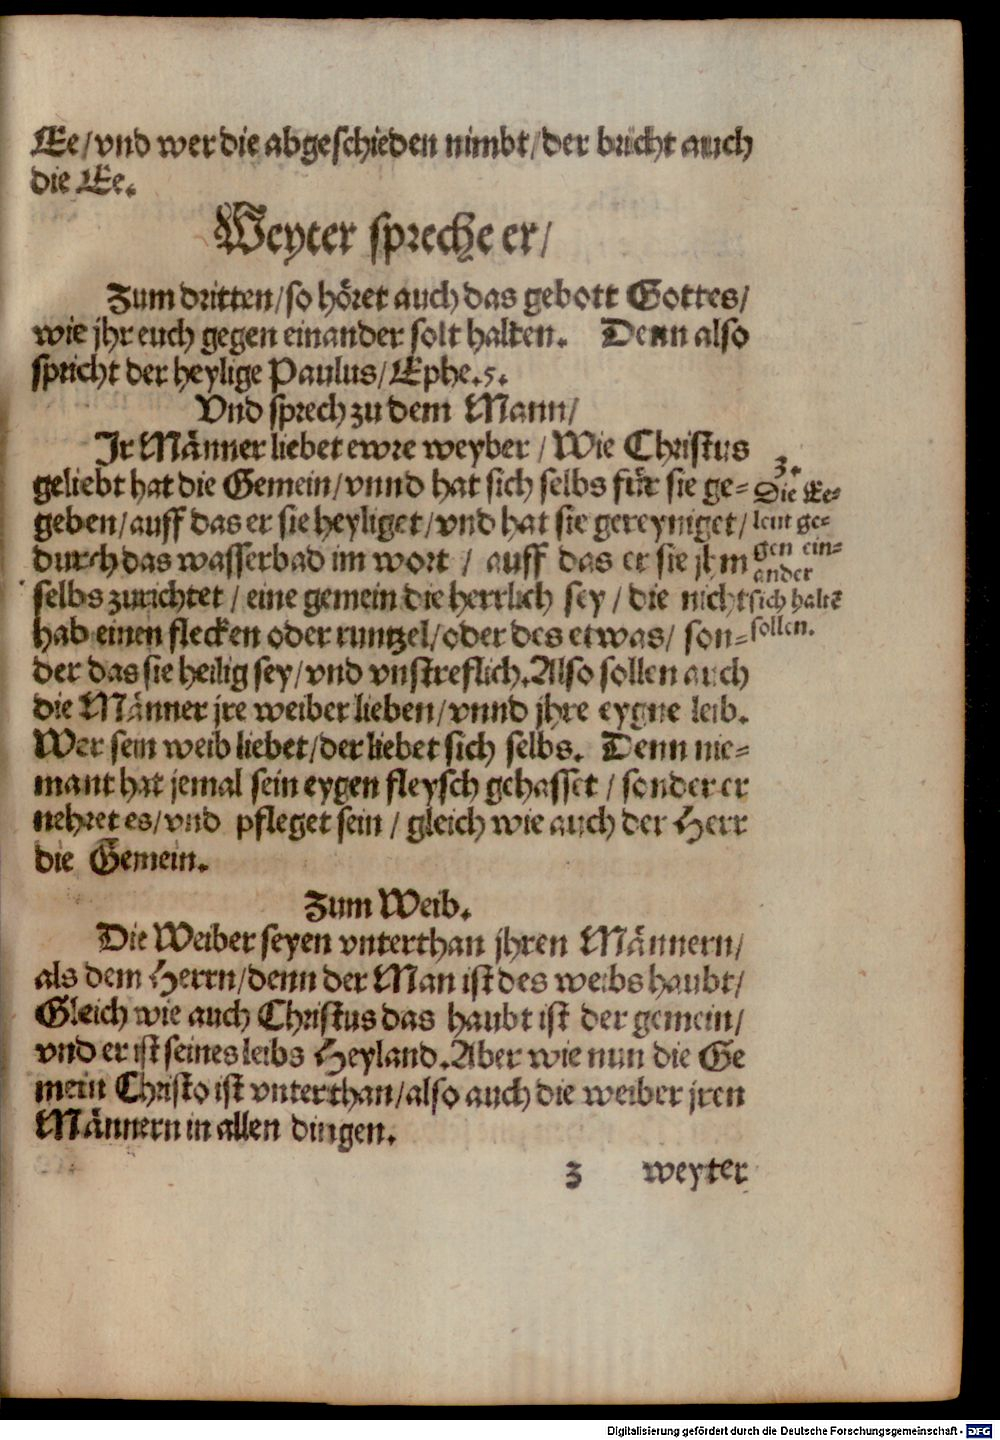 Ee/vnd wer die abgeschieden nimbt/der bricht auch
die Ee.
Weyter spreche er/
Zum dritten/so höret auch das gebott Gottes/
wie jhr euch gegen einander solt halten. Denn also
spricht der heylige Paulus/Ephe.5.
Vnd sprech zu dem Mann/
Ir Männer liebet ewre weyber/Wie Christus
geliebt hat die Gemein/vnnd hat sich selbs für sie ge-
geben/auff das er sie heyliget/vnd hat sie gereyniget/
durch das wasserbad im wort/auff das er sie jhm
selbs zurichtet/eine gemein die herrlich sey/die nicht
hab einen flecken oder runtzel/oder des etwas/son-
der das sie heilig sey/vnd vnstreflich.Also sollen auch
die Männer jre weiber lieben/vnnd jhre eygne leib.
Wer sein weib liebet/der liebet sich selbs. Denn nie-
mant hat jemal sein eygen fleysch gehasset/sonder er
nehret es/vnd pfleget sein/gleich wie auch der Herr
die Gemein.
3.
Die Ee-
leut ge-
gen ein-
ander
sich haltẽ
sollen.
Zum Weib.
Die Weiber seyen vnterthan jhren Männern/
als dem Herrn/denn der Man ist des weibs haubt/
Gleich wie auch Christus das haubt ist der gemein/
vnd er ist seines leibs Heyland.Aber wie nun die Ge
mein Christo ist vnterthan/also auch die weiber jren
Männern in allen dingen.
z weyter
Digitalisierung gefördert durch die Deutsche Forschungsgemeinschaft - DFG